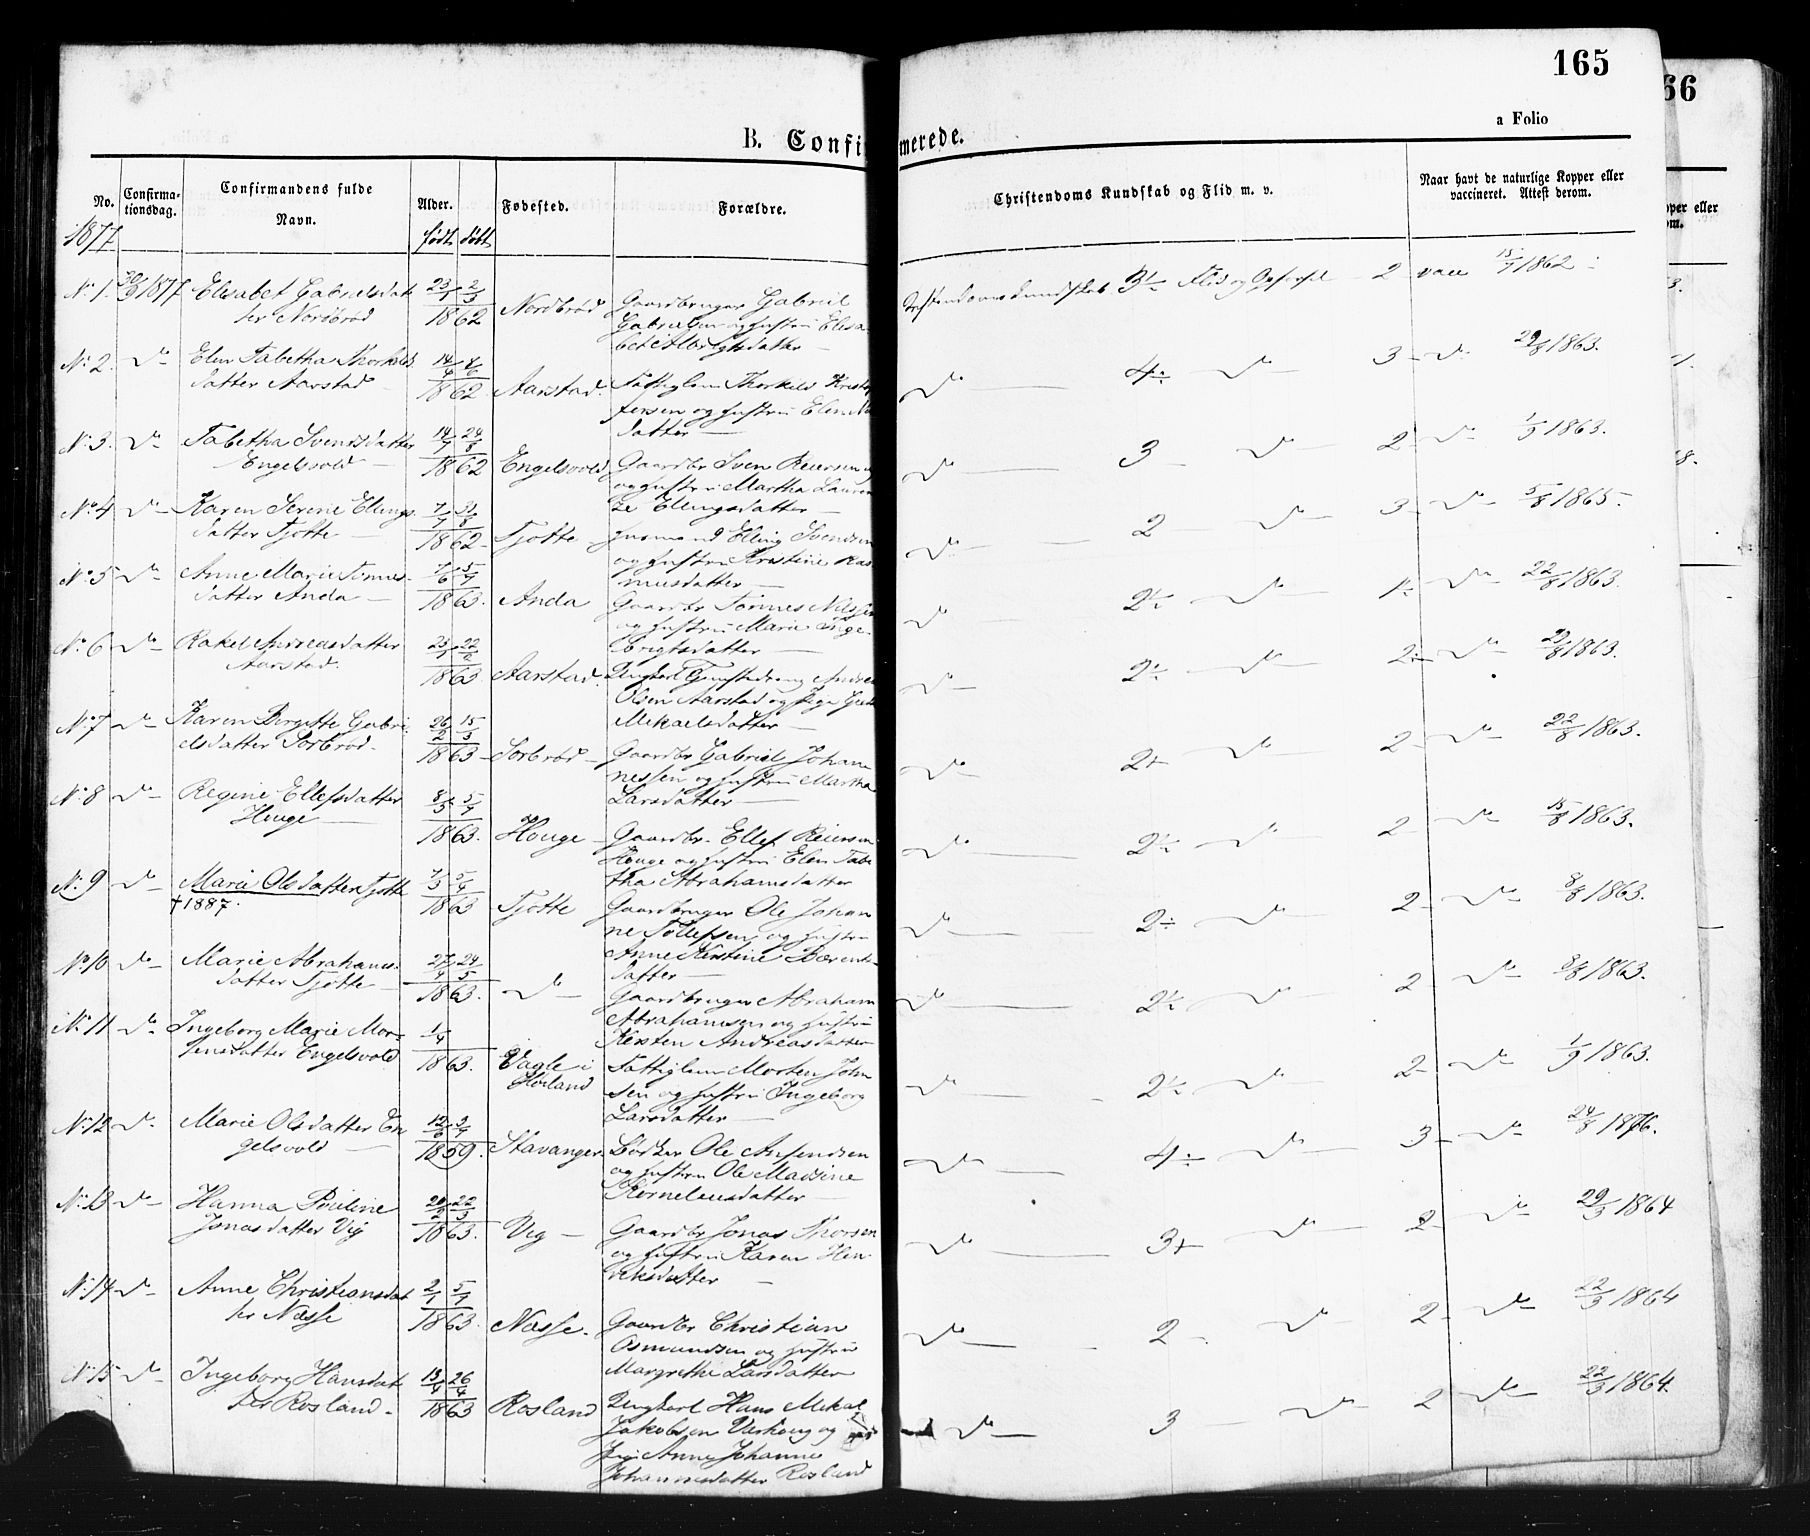 165
66
a Folio
B. Confirmerede.
No.
Confirma-
tionsdag.
Confirmandens fulde
Navn.
Alder.
Fødested.
Forældre.
Christendoms Kundskab og Flid m. v.
Naar havt de naturlige Kopper eller
vaccineret. Attest derom.
1877
født døbt
No 1. 30/9 1877 Elisabet Gabrielsdat
ter Nordbrød
23/1 2/3 1862
Nordbrød
Gaardbruger Gabriel
Gabrielsen og hustru Elisa-
bet
Kundskab 3÷ Flid og Opførsel 2 vacc 15/7 1862
No 2. do Elen Tabetha Thorkels
datter Aarstad
14/4 1862
Aarstad.
Fattiglem Thorkels
fersen og hustru Elen
datter
do 4÷ do 3 do 29/8 1863.
No 3. do Tabetha Svensdatter
Engelsvold
14/7 24/8 1862
Engelsvold
Gaardbr Sven Reiersen
og hustru Martha Lauren
ze Ellingsdatter
do 3 do 2 do 1/9 1863.
No 4 do Karen Serine Ellings
datter Tjøtte
7/7 31/8 1862
Tjøtte
Huusmand Elling Svendsen
og hustru Kristine Ras
musdatter
do 2 do 3 do 5/8 1865
No 5 do Anne Marie Tønnes-
datter Anda
1863.
Anda
Gaardbr Tønnes Nilssen
og hustru Marie Inge-
brigtsdatter
do 2÷ do 1÷ do 22/8 1863.
No 6 do Rakel Andreasdatter
Aarstad.
23/1 22/2 1863
Aarstad.
Ungkarl Andrea
Olsen Aarstad og Pige
Mikaelsdatter
do 2÷ do 2÷ do 29/8 1863.
No 7 do Karen Birgitte Gabri-
elsdatter Sørbrød
26/2 15/3 1863
Sørbrød
Gaardbr Gabriel Johan
nessen og hustru Martha
Larsdatter
do 2+ do 2 do 22/8 1863.
No 8 do Regine Ellefsdatter
Houge
8/3 1863.
Houge
Gaardbr. Ellef Reiersen
Houge og hustru Elen Tabe
tha Abrahamsdatter
do 2÷ do 2 do 15/8 1863.
No 9 do Marie Olsdatter Tjøtte
†1887.
7/3 5/4 1863
Tjøtte
Gaardbruger Ole Johan
ne Tollefsen og hustru
Anne Kirstine Bærents-
datter
do 2÷ do 2 do 8/8 1863.
No 10 do Marie Abrahams-
datter Tjøtte
27/4 24/5 1863.
do
Gaardbruger Abraham
Abrahamsen og hustru
Kirsten Andreasdatter
do 2÷ do 2 do 8/8 1863.
No 11 do Ingeborg Marie Mor-
tensdatter Engelsvold
1/4 1863.
Vagle i
Høiland
Fattiglem Morten John
sen og hustru Ingeborg
Larsdatter
do 2÷ do 2 do 1/9 1863.
No 12 do Marie Olsdatter En
gelsvold
12/6 1859.
Stavanger.
Bødker Ole
og hustru Ole Madsine
Korneliusdatter
do 4÷ do 3 do 24/8 1876.
No 13 do Hanna Pouline
Jonasdatter Vig
22/3 1863.
Vig
Gaardbr Jonas Thorsen
og hustru Karen Hen
riksdatter
do 3+ do 2 do 29/3 1864
No 14 do Anne Christiansdat
ter Næsse
1863.
Næsse.
Gaardbr Christian
Osmundsen og hustru
Margrethe Larsdatter
do 2 do 2 do 22/3 1864
No 15 do Ingeborg Hansdat
ter Rosland.
13/4 26/4 1863
Rosland
Ungkarl Hans Mikal
Jakobsen og
Pige Anne Johanne
Johannesdatter Rosland
do 3 do 2 do 22/3 1864.